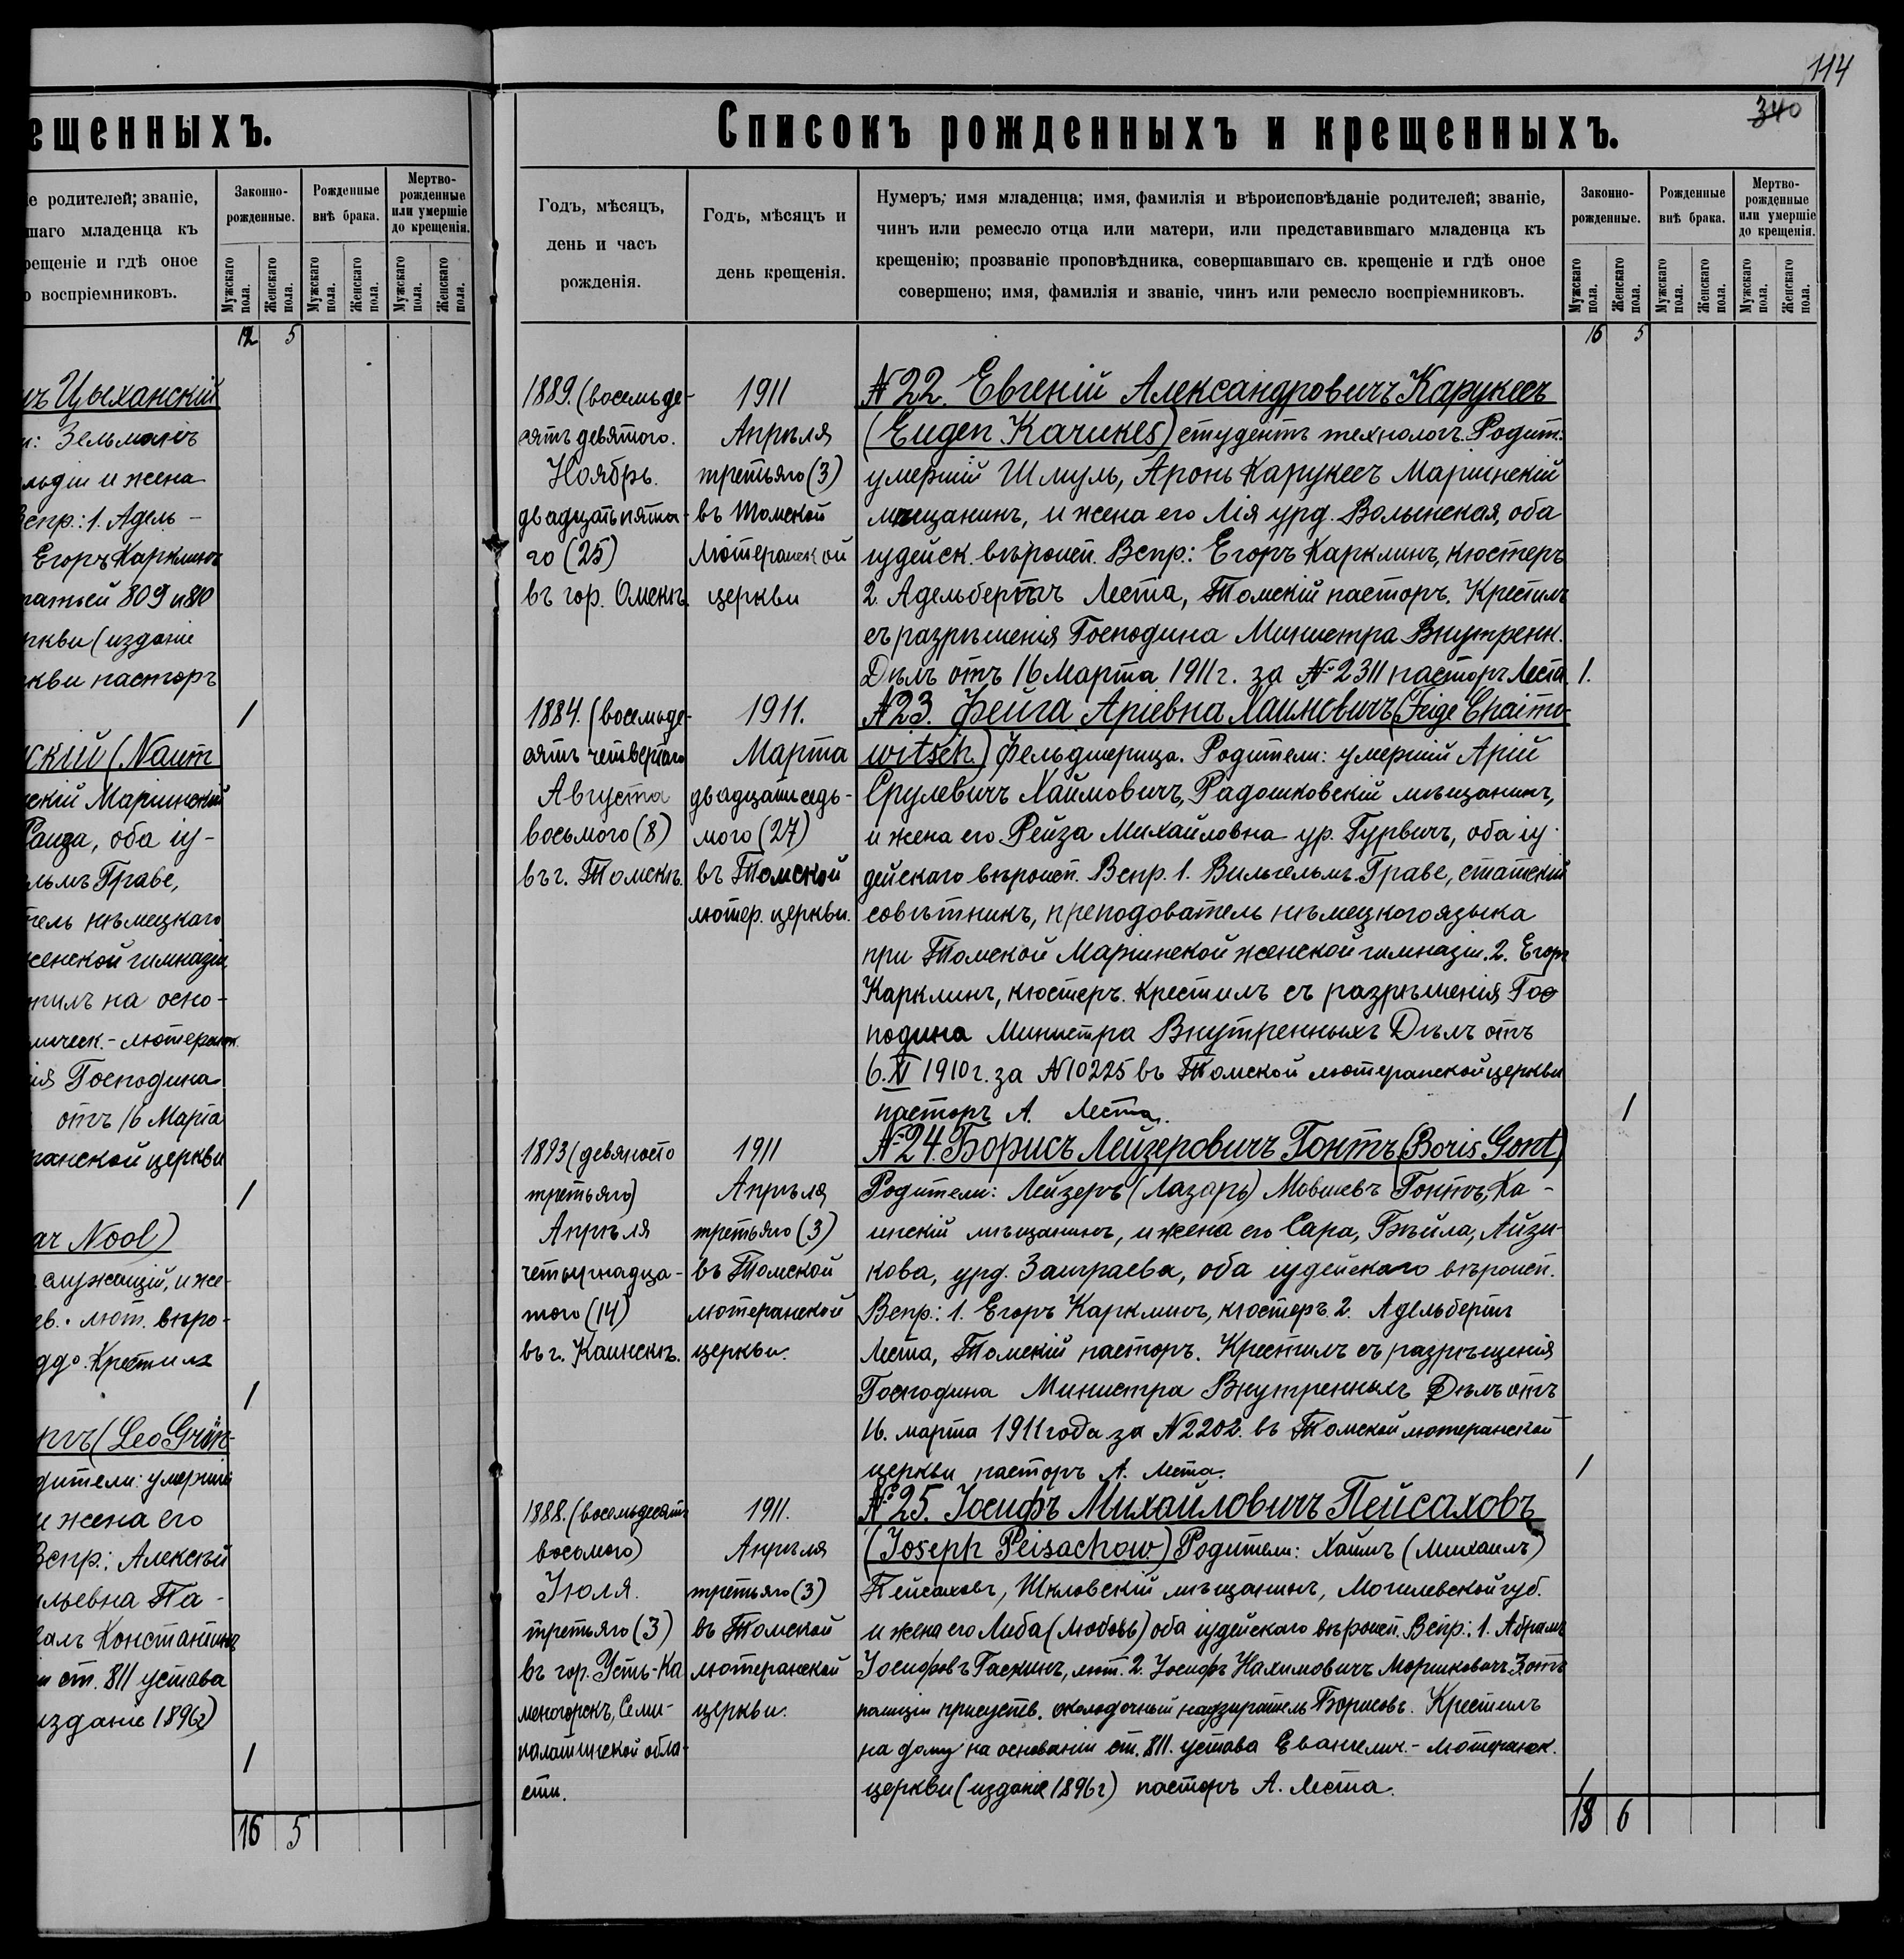 ещенныхъ.
е родителей; званіе,
шаго младенца къ
рещеніе и гдѣ оное
о воспріемниковъ.
Законно-
рожденные.
Рожденные
внѣ брака.
Мертво-
рожденные
или умершіе
до крещенія.
Мужскаго пола.
Женскаго пола.
Мужскаго пола.
Женскаго пола.
Мужскаго пола.
Женскаго пола.
12 5
чъ Цыханскій
и: Зельманъ
льдіи и жена
Вспр.: 1. Адель-
Егоръ Карклинъ
татьей 809 и 810
ркви (изданіе
кви пасторъ
1
скій (Naum
скій Маріинскій
Раиза, оба іу-
льмъ Граве,
тель нѣмецкаго
женской гимназіи
тилъ на осно-
лическ.-лютеранск.
ія Господина
отъ 16 Марта
ранской церкви
1
ar Nool)
служащій, и же-
ев.-лют. вѣро-
ддо. Крестилъ
1
ргъ (Leo Grün-
дители: умершій
и жена его
Вспр.: Алексѣй
льевна Па-
галъ Константинъ
и ст. 811 устава
изданіе 1896г)
1
16 5
114
340
Списокъ рожденныхъ и крещенныхъ.
Годъ, мѣсяцъ,
день и часъ
рожденія.
Годъ, мѣсяцъ и
день крещенія.
Нумеръ; имя младенца; имя, фамилія и вѣроисповѣданіе родителей; званіе,
чинъ или ремесло отца или матери, или представившаго младенца къ
крещенію; прозваніе проповѣдника, совершавшаго св. крещеніе и гдѣ оное
совершено; имя, фамилія и званіе, чинъ или ремесло воспріемниковъ.
Законно-
рожденные.
Рожденные
внѣ брака.
Мертво-
рожденные
или умершіе
до крещенія.
Мужскаго пола.
Женскаго пола.
Мужскаго пола.
Женскаго пола.
Мужскаго пола.
Женскаго пола.
16 5
1889. (восемьде-
сятъ девятого.
Ноябрь.
двадцать пята-
го (25)
въ гор. Омскѣ.
1911
Апрѣля
третьяго (3)
въ Томской
Лютеранской
церкви
№ 22. Евгеній Александровичъ Карукесъ
(Eugen Karukes) студентъ технологъ. Родит.:
умершій Шмуль, Аронъ Карукесъ Маріинскій
мѣщанинъ, и жена его Лія урд. Волынская, оба
іудейск. вѣроисп. Вспр.: Егоръ Карклинъ, кюстеръ
2. Адельбертъ Леста, Томскій пасторъ. Крестилъ
съ разрѣшенія Господина Министра Внутренн.
Дѣлъ отъ 16 Марта 1911 г. за № 2311 пасторъ Леста
1.
1884. (восемьде-
сятъ четвертаго
Августа
восьмого (8)
въ г. Томскѣ.
1911.
Марта
двадцать седь-
мого (27)
въ Томской
лютер. церкви.
№ 23. Фейга Аріевна Хаимовичъ (Feige Chaimo-
witsch.) Фельдшерица. Родители: умершій Арій
Срулевичъ Хаймовичъ, Радошковскій мѣщанинъ,
и жена его Рейза Михайловна ур. Гурвичъ, оба іу-
дейскаго вѣроисп. Вспр. 1. Вильгельмъ Граве, статскій
совѣтникъ, преподователь нѣмецкого языка
при Томской Маріинской женской гимназіи. 2. Егоръ
Карклинъ, кюстеръ. Крестилъ съ разрѣшенія Гос
подина Министра Внутренныхъ Дѣлъ отъ
6. XI 1910 г. за № 10225 въ Томской лютеранской церкви
пасторъ А. Леста.
1
1893 (девяносто
третьяго)
Апрѣля
четырнадца-
того (14)
въ г. Каинскѣ.
1911
Апрѣля
третьяго (3)
въ Томской
лютеранской
церкви.
№ 24. Борисъ Лейзеровичъ Гонтъ (Boris Gont)
Родители: Лейзеръ (Лазарь) Мовшевъ Гонтъ, Ка-
инскій мѣщанинъ, и жена его Сара, Бѣйла, Айзи-
кова, урд. Заиграева, оба іудейскаго вѣроисп.
Вспр.: 1. Егоръ Карклинъ, кюстеръ 2. Адельбертъ
Леста, Томскій пасторъ. Крестилъ съ разрѣщенія
Господина Министра Внутренныхъ Дѣлъ отъ
16. марта 1911 года за № 2202. въ Томской лютеранской
церкви пасторъ А. Леста.
1
1888. (восемьдесятъ
восомого)
Іюля.
третьяго (3)
въ гор. Усть-Ка
меногорскъ, Семи-
палатинской обла-
сти.
1911.
Апрѣля
третьяго (3)
въ Томской
лютеранской
церкви.
№ 25. Іосифъ Михайловичъ Пейсаховъ
(Joseph Peisachow) Родители: Хаимъ (Михаилъ)
Пейсаховъ, Шкловскій мѣщанинъ, Могилевской губ.
и жена его Либа (Любовь) оба іудейскаго вѣроисп. Вспр.: 1. Абрамъ
Іосифовъ Гаскинъ, лют. 2. Іосифъ Нахимовичъ Моршковичъ 3. отъ
полиціи присутств. околодочный надзиратель Борисовъ. Крестилъ
на дому на основаніи ст. 811. устава Евангелич.-Лютеранск.
церкви (изданіе 1896г) пасторъ А. Леста.
1
18 6